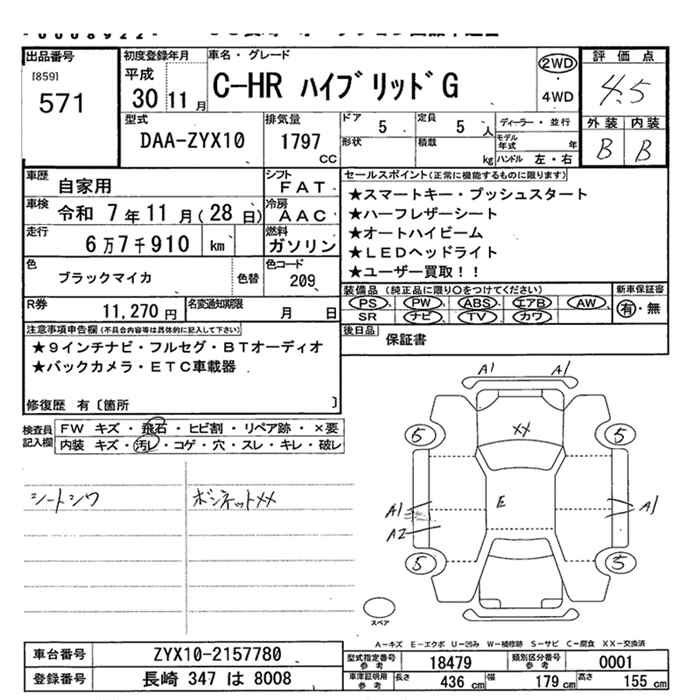 出品番号
[859]
571
初度登録年月
平成
30 11 月
車名・グレード
C-HR ハイブリッドG
2WD
4WD
評価点
4.5
外装 内装
B B
型式
DAA-ZYX10
排気量
1797
cc
ドア 5
定員 5 人
形状
積載 kg
ディーラー・並行
モデル年式 年
ハンドル 左・右
車歴
自家用
シフト
FAT
車検 令和 7年 11月(28日)
冷房
AAC
走行
6万7千910 km
燃料
ガソリン
色
ブラックマイカ
色替
色コード
209
R券
11,270円
名変通知期限
月 日
セールスポイント(正常に機能するものに限ります)
★スマートキー・プッシュスタート
★ハーフレザーシート
★オートハイビーム
★LEDヘッドライト
★ユーザー買取!!
装備品(純正品に限り○をつけてください)
PS PW ABS エアB AW
SR ナビ TV カワ
新車保証書
有・無
後日品
保証書
注意事項申告欄(不具合内容等は具体的に記入して下さい)
★9インチナビ・フルセグ・BTオーディオ
★バックカメラ・ETC車載器
修復歴 有〔箇所 〕
検査員記入欄
FW キズ・飛石・ヒビ割・リペア跡・×要
内装 キズ・汚レ・コゲ・穴・スレ・キレ・破レ
シートシワ
ボンネットXX
A1 A1
5 XX 5
A1 E A1
A2
5 5
スペア
A-キズ E-エクボ U-凹み W-補修跡 S-サビ C-腐食 XX-交換済
車台番号 ZYX10-2157780
登録番号 長崎 347 は 8008
型式指定番号 参考 18479
類別区分番号 参考 0001
車庫証明用 参考 長さ 436 cm 幅 179 cm 高さ 155 cm